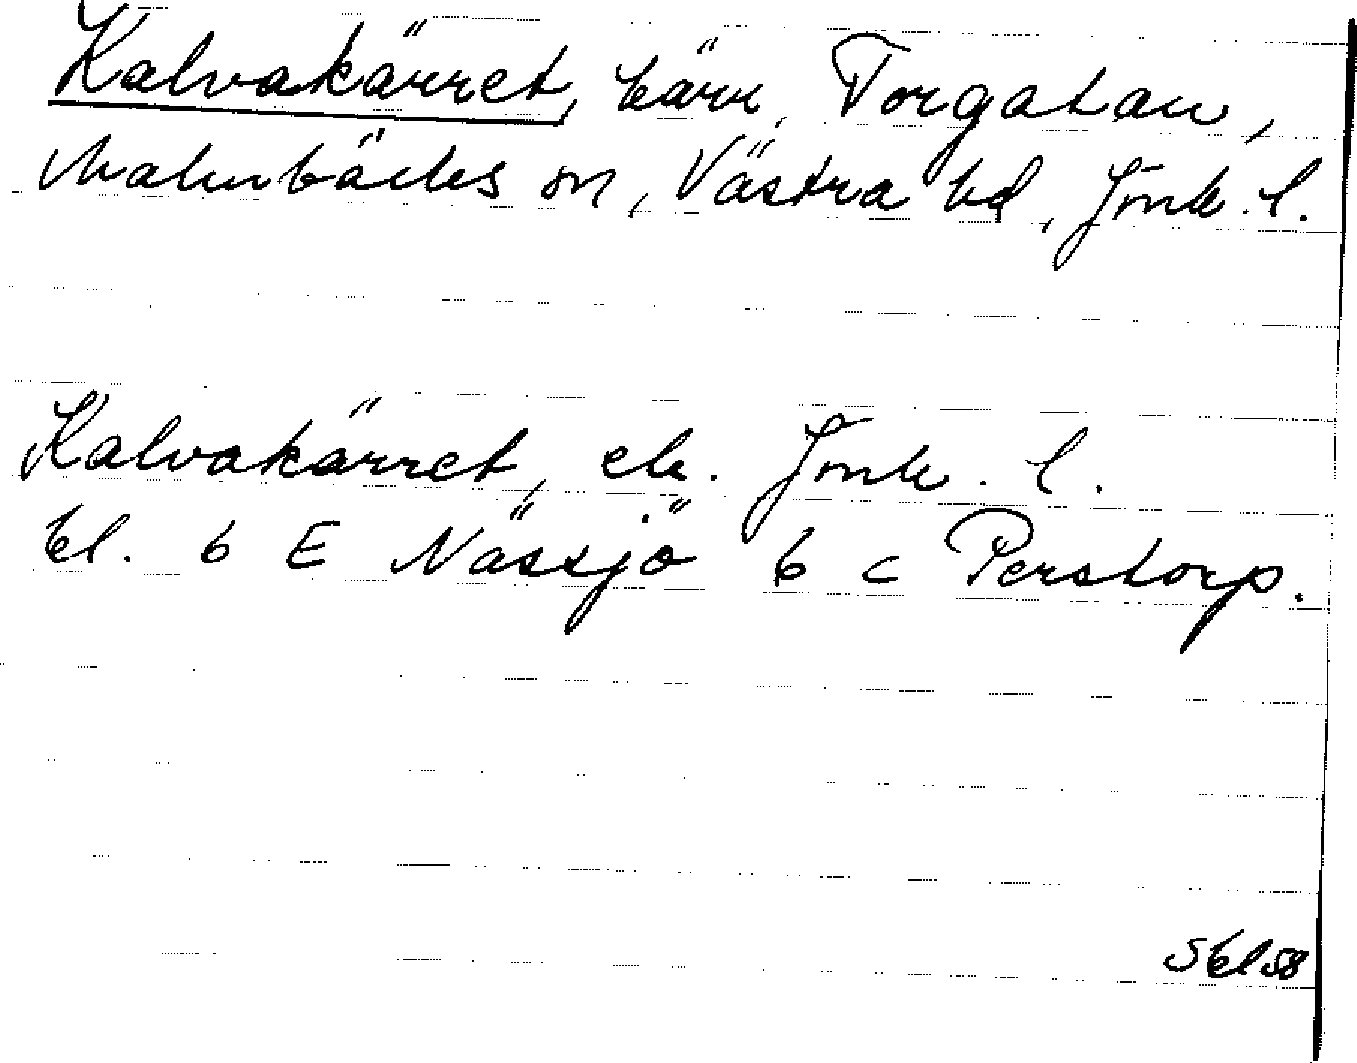 Kalvakärret, kärr, Torgatan,
Malmbäcks sn, Västra hd, Jönk. l.
Kalvakärret, ek. Jönk. l.
bl. 6 E Nässjö 6 c Perstorp.